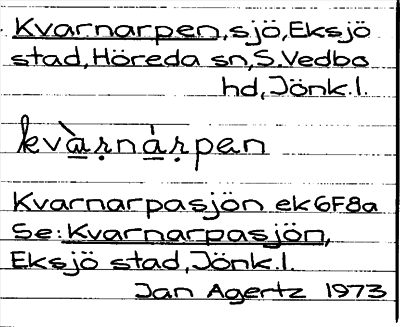 Kvarnarpen, sjö, Eksjö
stad, Höreda sn, S. Vedbo
hd, Jönk.l.
kvàṛnàṛpen
Kvarnarpasjön ek 6F8a
Se: Kvarnarpasjön,
Eksjö stad, Jönk.l.
Jan Agertz 1973